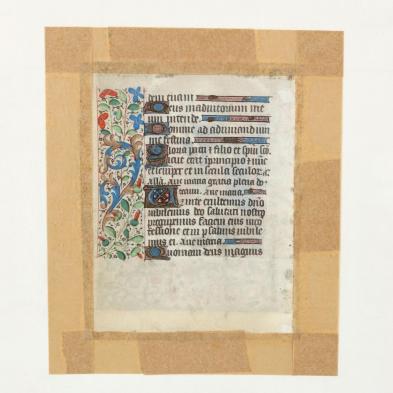 dem tuam
Deus in adiutorium me
um intende.
Domine ad adiuvandum
me festina.
Gloria patri & filio et spui sco
sicut erat in principio & nunc
et semper et in secula seculor. a
alla. Aue maria gracia plena do
tecum. Aue maria.
Uenite exultemus dno
iubilemus deo salutari nostro
preocupemus faciem eius in co
fessione et in psalmis iubile
mus ei. Aue maria.
Quoniam deus magnus